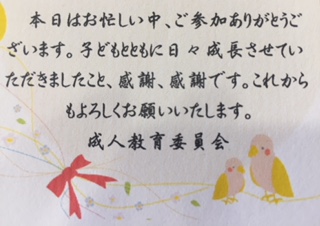 本日はお忙しい中、ご参加ありがとうご
ざいます。子どもとともに日々成長させてい
ただきましたこと、感謝、感謝です。これから
もよろしくお願いいたします。
成人教育委員会